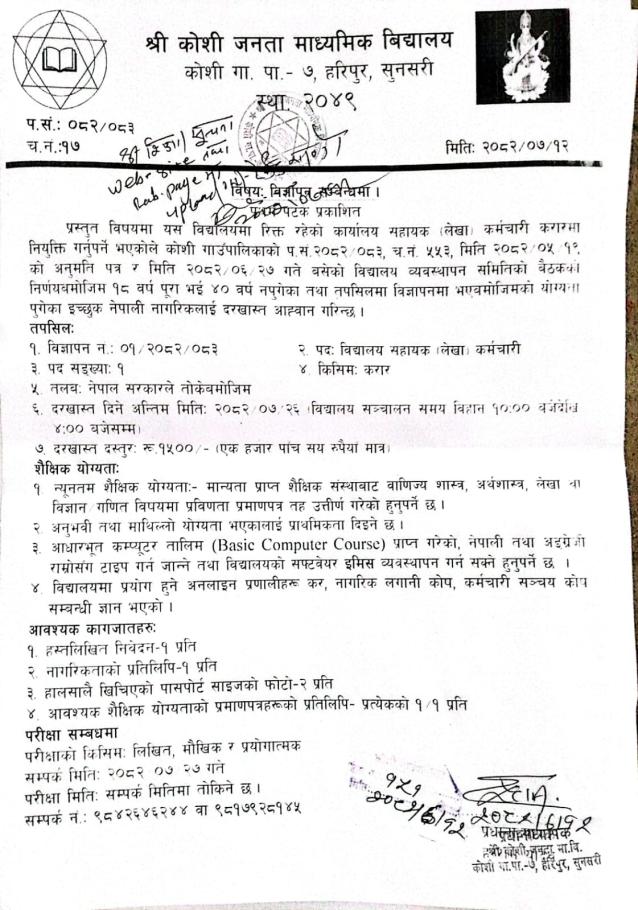 श्री कोशी जनता माध्यमिक बिद्यालय
कोशी गा. पा.- ७, हरिपुर, सुनसरी
स्था. २०४९
प.सं.: ०८२/०८३
च.नं.:१७
मिति: २०८२/०७/१२
web-site तथा
upload
विषय: विज्ञापन सम्बन्धमा ।
पटक प्रकाशित
प्रस्तुत विषयमा यस विद्यालयमा रिक्त रहेको कार्यालय सहायक (लेखा) कर्मचारी करारमा
नियुक्ति गर्नुपर्ने भएकोले कोशी गाउँपालिकाको प.सं.२०८२/०८३, च.नं. ५५३, मिति २०८२/०५/१९
को अनुमति पत्र र मिति २०८२/०६/२७ गते बसेको विद्यालय व्यवस्थापन समितिको बैठकको
निर्णयबमोजिम १८ वर्ष पूरा भई ४० वर्ष नपुगेका तथा तपसिलमा विज्ञापनमा भएबमोजिमको योग्यता
पुगेका इच्छुक नेपाली नागरिकलाई दरखास्त आह्वान गरिन्छ ।
तपसिल:
१. विज्ञापन न.: ०१/२०८२/०८३ २. पद: विद्यालय सहायक (लेखा) कर्मचारी
३. पद सङ्ख्या: १ ४. किसिम: करार
५. तलब: नेपाल सरकारले तोकेबमोजिम
६. दरखास्त दिने अन्तिम मिति: २०८२/०७/२६ (विद्यालय सञ्चालन समय विहान १०:०० बजेदेखि
४:०० बजेसम्म)
७. दरखास्त दस्तुर: रू.१५००/- (एक हजार पांच सय रुपैया मात्र)
शैक्षिक योग्यता:
१. न्यूनतम शैक्षिक योग्यता:- मान्यता प्राप्त शैक्षिक संस्थाबाट वाणिज्य शास्त्र, अर्थशास्त्र, लेखा वा
विज्ञान/गणित विषयमा प्रविणता प्रमाणपत्र तह उत्तीर्ण गरेको हुनुपर्ने छ ।
२. अनुभवी तथा माथिल्लो योग्यता भएकालाई प्राथमिकता दिइने छ ।
३. आधारभूत कम्प्युटर तालिम (Basic Computer Course) प्राप्त गरेको, नेपाली तथा अङ्ग्रेजी
राम्रोसंग टाइप गर्न जान्ने तथा विद्यालयको सफ्टवेयर इमिस व्यवस्थापन गर्न सक्ने हुनुपर्ने छ ।
४. विद्यालयमा प्रयोग हुने अनलाइन प्रणालीहरू कर, नागरिक लगानी कोष, कर्मचारी सञ्चय कोष
सम्बन्धी ज्ञान भएको ।
आवश्यक कागजातहरु:
१. हस्तलिखित निवेदन-१ प्रति
२. नागरिकताको प्रतिलिपि-१ प्रति
३. हालसालै खिचिएको पासपोर्ट साइजको फोटो-२ प्रति
४. आवश्यक शैक्षिक योग्यताको प्रमाणपत्रहरूको प्रतिलिपि- प्रत्येकको १/१ प्रति
परीक्षा सम्बधमा
परीक्षाको किसिम: लिखित, मौखिक र प्रयोगात्मक
सम्पर्क मिति: २०८२ ०७ २७ गते
परीक्षा मिति: सम्पर्क मितिमा तोकिने छ ।
सम्पर्क नं.: ९८४२६४६२४४ वा ९८१७९२८१४५
श्री कोशी जनता मा.वि.
कोशी गा.पा.-७, हरिपुर, सुनसरी